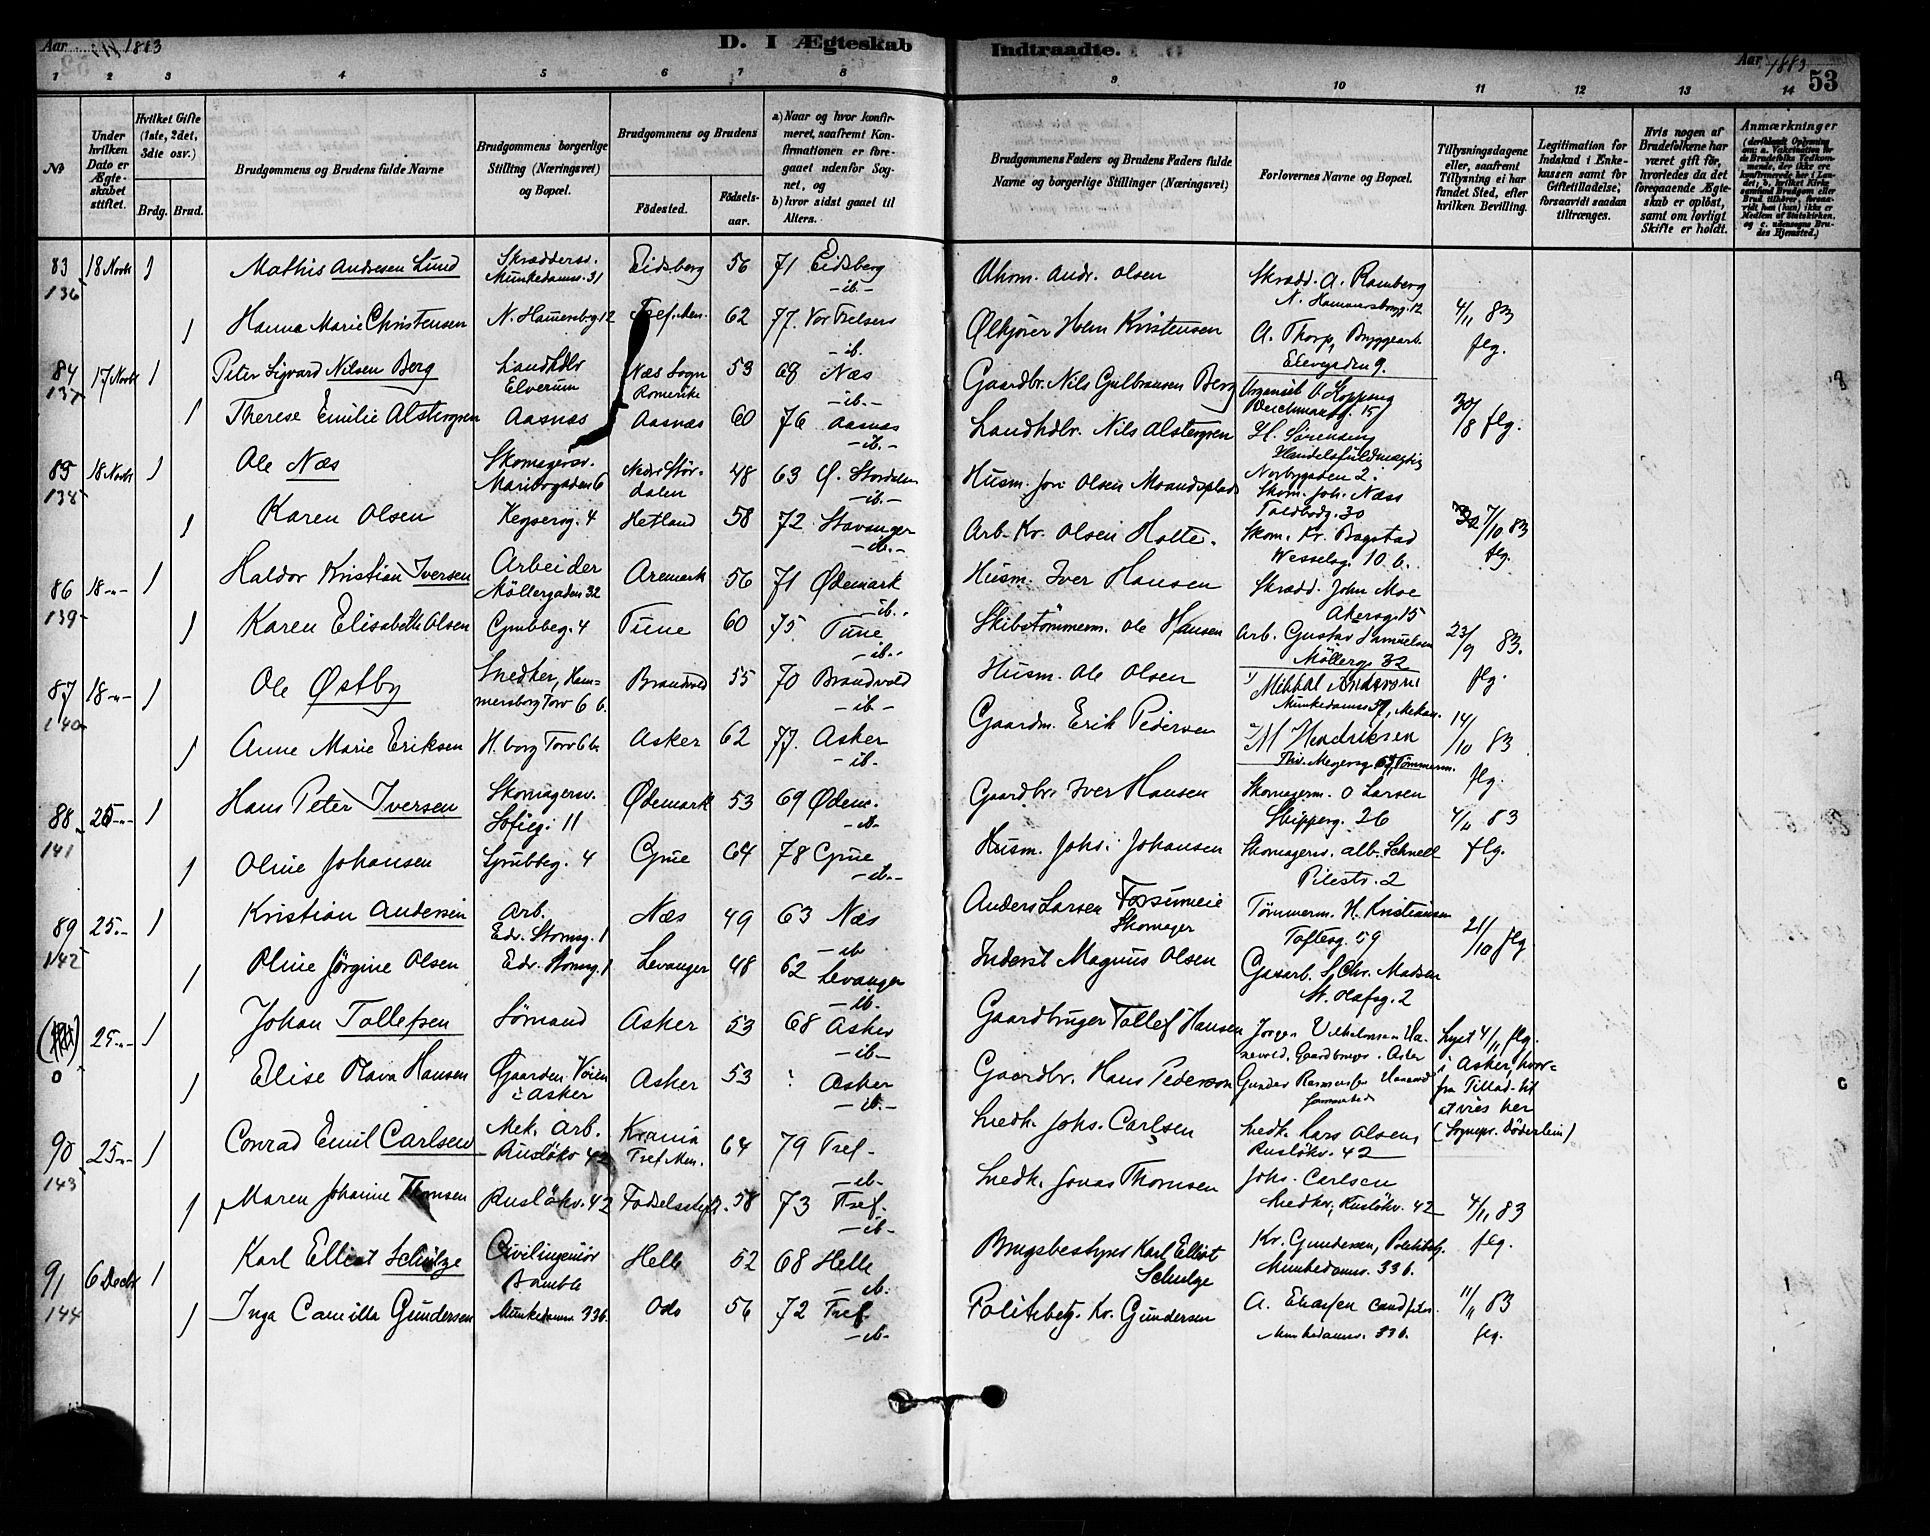 Aar 1883
D. I Ægteskab Indtraadte.
Aar 1883 53
1 2 3 4 5 6 7 8 9 10 11 12 13 14
No
Under hvilken Dato er Ægteskabet stiftet.
Hvilket Gifte (1ste, 2det, 3die osv.)
Brdg. Brud.
Brudgommens og Brudens fulde Navne
Brudgommens borgerlige Stilling (Næringsvei) og Bopæl.
Brudgommens og Brudens
Födested.
Födselsaar.
a) Naar og hvor konfirmeret, saafremt Konfirmationen er foregaaet udenfor Sognet, og
b) hvor sidst gaaet til Alters.
Brudgommens Faders og Brudens Faders fulde Navne og borgerlige Stillinger (Næringsvei)
Forlovernes Navne og Bopæl.
Tillysningsdagene eller, saafremt Tillysning ei har fundet Sted, efter hvilken Bevilling.
Legitimation for Indskud i Enkekassen samt for Giftetilladelse, forsaavidt saadan tiltrænges.
Hvis nogen af Brudefolkene har været gift för, hvorledes da det foregaaende Ægteskab er oplöst, samt om lovligt Skifte er holdt.
Anmærkninger
83 136 18 Novbr 1 Mathis Andresen Lund Skrædders. Munkedamsv. 31 Eidsberg 56 71 Eidsberg -ib.- Uhrm. Andr. Olsen Skrædd. A. Ramberg N. Hammersborgg. 12
1 Hanna Marie Christensen N. Hamersbrg. 12 Tref. Men. 62 77. Vor Frelsers -ib. Ølkjører Herm Kristensen A. Thorp, Bryggearb. Elvegaden 9. 4/11 83 flg.
84 137 17 Novbr 1 Peter Sigvard Nilsen Berg Landhdlr Elverum Næs Sogn Romerike 53 68 Næs -ib.- Gaardbr. Nils Gulbransen Berg Organist O. Koppang Deichmansg. 15
1 Therese Emilie Alstergren Aasnæs Aasnæs 60 76 Aasnæs -ib- Landhdlr. Nils Alstergren H. Sørensen Handelsfuldmægtig Norbygaden 2. 30/8 flg.
85 138 18 Novbr 1 Ole Næs Skomagersv. Maribogaden 6 Nedre Stördalen 48 63 Ø. Stördalen -ib.- Husm. Jon Olsen Moandsplads Skom. Joh. Næss Toldbodg. 30
1 Karen Olsen Keysersg. 4 Hetland 58 72 Stavanger -ib.- Arb. Kr. Olsen Holte. Skom. Kr. Bogstad Wesselsg. 10 b. 7/10 83 flg.
86 139 18 -"- 1 Haldor Kristian Iversen Arbeider Möllergaden 32 Aremark 56 71 Ødemark -ib.- Husm. Iver Hansen Skrædd. John Moe Akersg. 15
1 Karen Elisabeth Olsen Grubbeg. 4 Tune 60 75. Tune -ib.- Skibstömmerm. Ole Hansen Arb. Gustav Samuelsen Möllerg. 32 23/9 83. flg.
87 140 18 -"- 1 Ole Østby Snedker, Hammersborg Torv 6 b. Brandvold 55 70 Brandvold -ib- Husm. Ole Olsen Mikkal Andersen Munkedamsv. 59, Mekan.
1 Anne Marie Eriksen H.borg Torv 6b. Asker 62 77. Asker -ib. Gaardm. Erik Pedersen M Hendriksen Thv. Meyersg. 69, Tømmerm. 14/10 83 flg.
88 141 25 -"- 1 Hans Peter Iversen Skomagersv. Sofieg. 11 Ødemark 53 69 Ødem. -ib- Gaardbr. Iver Hansen Skomagerm. O Larsen Skipperg. 26
1 Oline Johansen Grubbeg. 4 Grue 64 78 Grue -ib.- Husm. Johs. Johansen Skomagersv. Alb. Schnell Pilestr. 2 4/11 83 flg.
89 142 25.- 1 Kristian Andersen Arb. Edv. Stormsg. 1 Næs 49 63 Næs -ib Anders Larsen Fossumeie Skomager Tømmerm. H. Kristiansen Toftesg. 59
1 Oline Jörgine Olsen Edv. Stormsg. 1 Levanger 48 62 Levanger -ib. Inderst Magnus Olsen Gasarb. S. Chr. Madsen St. Olafsg. 2 21/10 flg
0 25 -"- 1 Johan Tollefsen Sömand Asker 53 68 Asker -ib- Gaardbruger Tollef Hansen Jørgen Vilhelmsen Gaardbruger i Asker
1 Elise Olava Hansen Gaarden Voien i Asker Asker 53 Asker -ib.- Gaardbr. Hans Pederson Gunder Rasmussen Lyst 4/11 flg. i Asker, hvorfra Tillad. til at vies her (Sognepr. Döderlein)
90 143 25 -"- 1 Conrad Emil Carlsen Mek. Arb. Rusløkv 42 Krania Tref. Men. 64 79 Tref. -ib- Snedk. Johs. Carlsen Snedk. Lars Olsen, Rusløkv. 42
1 Maren Johanne Thomsen Rusløkv. 42 Fødselsstift. 58 73 Tref. -ib- Snedk. Jonas Thomsen Johs. Carlsen Snedker, Rusløkv. 42 4/11 83 flg.
91 144 6 Decbr 1 Karl Elliot Schulze Civilingeniör Bamble Helle 52 68 Helle -ib. Brugsbestyrer Karl Elliot Schulze Kr. Gundersen, Politibetj. Munkedamsv. 33 b.
1 Inga Camilla Gundersen Munkedamsv. 33b. Oslo 56 72 Tref. -ib- Politibetj. Kr. Gundersen A. Eliassen Munkedamsv. 33 b. 11/11 83 flg.